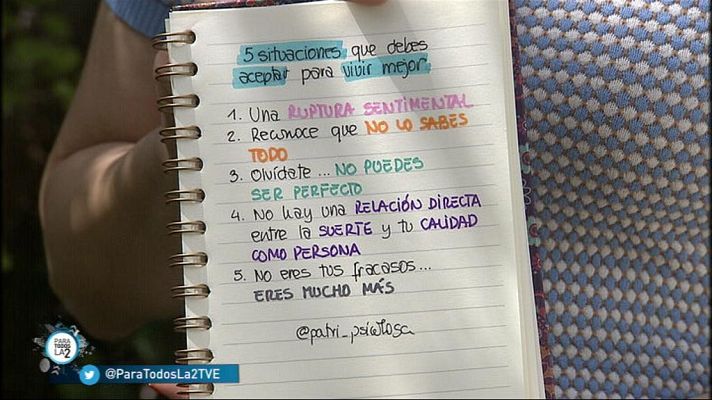 5 situaciones que debes
aceptar para vivir mejor
1. Una RUPTURA SENTIMENTAL
2. Reconoce que NO LO SABES
TODO
3. Olvídate... NO PUEDES
SER PERFECTO
4. No hay una RELACIÓN DIRECTA
entre la SUERTE y tu CALIDAD
COMO PERSONA
5. No eres tus fracasos...
ERES MUCHO MÁS
@patri_psicóloga
PARA
TODOS
LA2
@ParaTodosLa2TVE